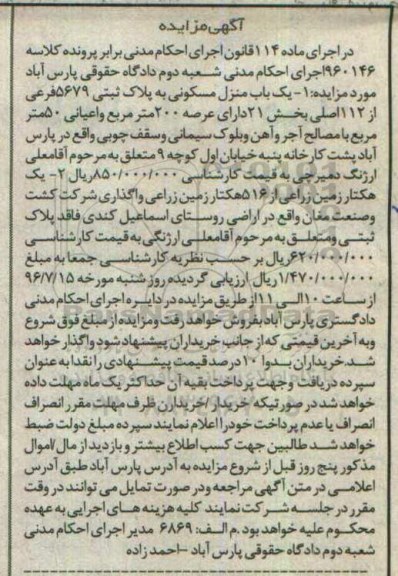 آگهی مزایده
در اجرای ماده ۱۱۴ قانون اجرای احکام مدنی برابر پرونده کلاسه
۹۶۰۱۴۶ اجرای احکام مدنی شعبه دوم دادگاه حقوقی پارس آباد
مورد مزایده: ۱- یک باب منزل مسکونی به پلاک ثبتی ۵۶۷۹ فرعی
از ۱۱۲ اصلی بخش ۲۱ دارای عرصه ۲۰۰ متر مربع واعیانی ۵۰ متر
مربع با مصالح آجر و آهن وبلوک سیمانی وسقف چوبی واقع در پارس
آباد پشت کارخانه پنبه خیابان اول کوچه ۹ متعلق به مرحوم آقامعلی
ارژنگ دمیرچی به قیمت کارشناسی ۸۵۰/۰۰۰/۰۰۰ ریال ۲- یک
هکتار زمین زراعی از ۵۱۶ هکتار زمین زراعی واگذاری شرکت کشت
وصنعت مغان واقع در اراضی روستای اسماعیل کندی فاقد پلاک
ثبتی ومتعلق به مرحوم آقامعلی ارژنگی به قیمت کارشناسی
۶۲۰/۰۰۰/۰۰۰ ریال بر حسب نظریه کارشناسی جمعا به مبلغ
۱/۴۷۰/۰۰۰/۰۰۰ ریال ارزیابی گردیده روز شنبه مورخه ۹۶/۷/۱۵
از ساعت ۱۰ الی ۱۱ از طریق مزایده در دایره اجرای احکام مدنی
دادگستری پارس آباد بفروش خواهد رفت ومزایده از مبلغ فوق شروع
وبه آخرین قیمتی که از جانب خریداران پیشنهاد شود واگذار خواهد
شد خریداران بدوا ۱۰ درصد قیمت پیشنهادی را نقدا به عنوان
سپرده دریافت وجهت پرداخت بقیه آن حداکثر یک ماه مهلت داده
خواهد شد در صورتیکه خریدار/خریداران ظرف مهلت مقرر انصراف
انصراف یا عدم پرداخت خود را اعلام نمایند سپرده مبلغ دولت ضبط
خواهد شد طالبین جهت کسب اطلاع بیشتر و بازدید از مال/اموال
مذکور پنج روز قبل از شروع مزایده به آدرس پارس آباد طبق آدرس
اعلامی در متن آگهی مراجعه ودر صورت تمایل می توانند در وقت
مقرر در جلسه شرکت نمایند کلیه هزینه های اجرایی به عهده
محکوم علیه خواهد بود .م الف: ۶۸۶۹ مدیر اجرای احکام مدنی
شعبه دوم دادگاه حقوقی پارس آباد -احمد زاده